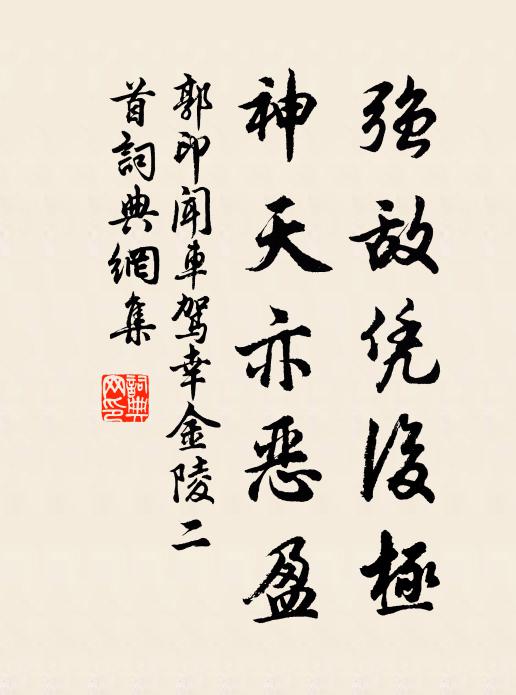 强敌凭陵極
神天亦恶盈
郭印聞車駕幸金陵二
首詞典網集
詞典
网印